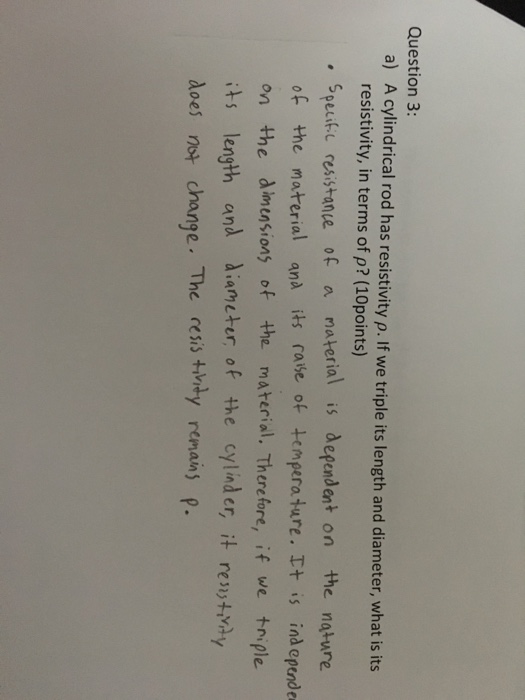 Question 3:
a) A cylindrical rod has resistivity ρ. If we triple its length and diameter, what is its
resistivity, in terms of ρ? (10points)
• Specific resistance of a material is dependent on the nature
of the material and its raise of temperature. It is independe
on the dimensions of the material. Therefore, if we triple
its length and diameter, of the cylinder, it resistivity
does not change. The resistivity remains ρ.